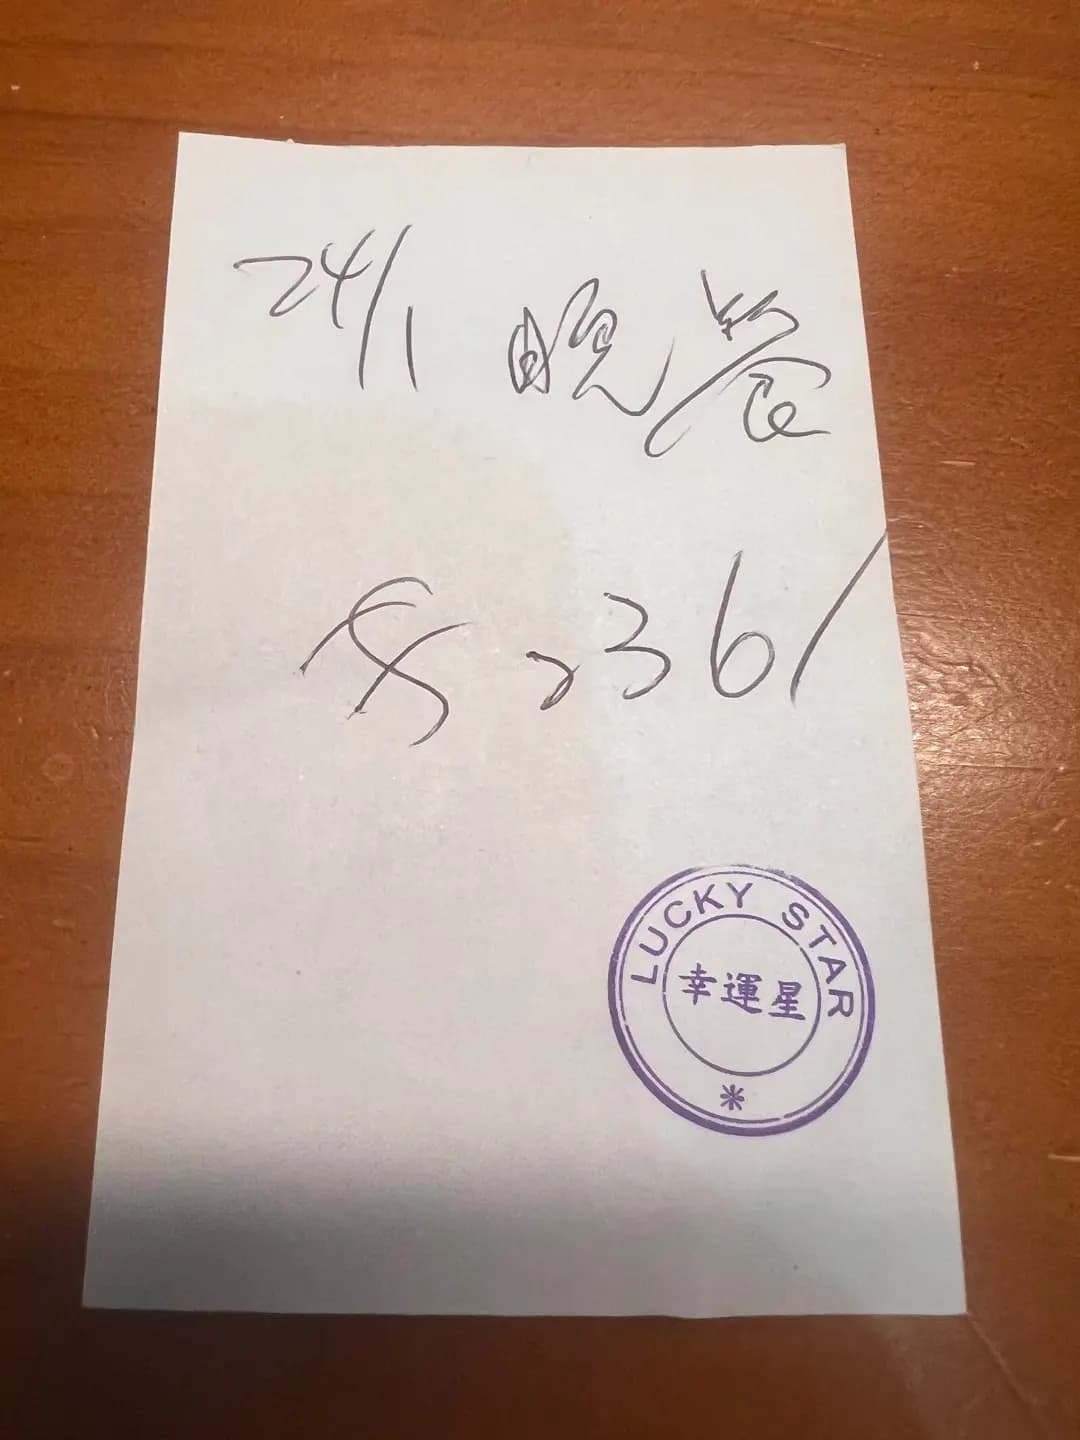 24/1 晚餐
2361
LUCKY STAR
幸運星